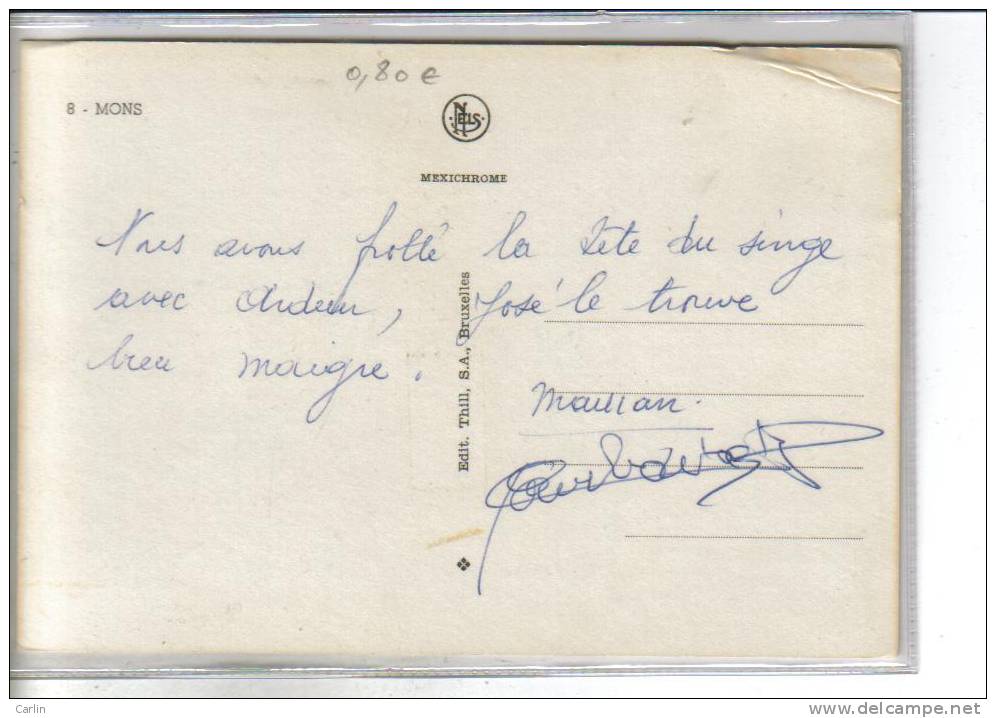 0,80 €
8 - MONS
NELS
MEXICHROME
Nous avons frotté la tête du singe
avec ardeur, José le trouve
bien maigre.
Edit. Thill, S.A., Bruxelles
Carlin
www.delcampe.net